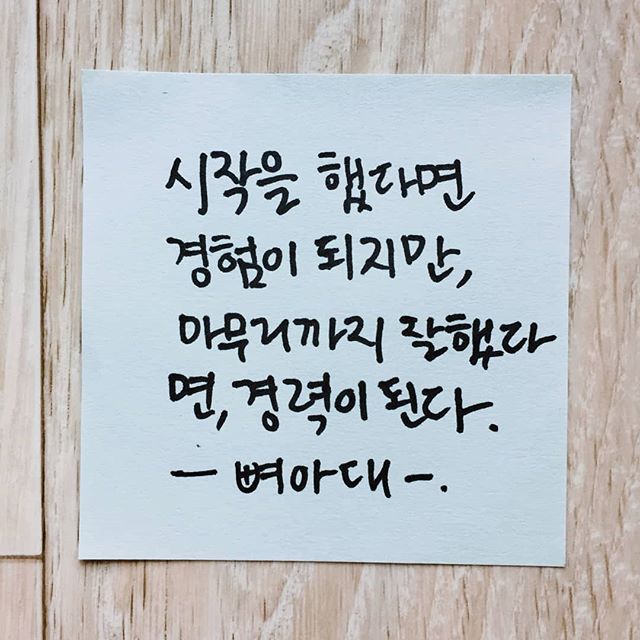 시작을 했다면
경험이 되지만,
마무리까지 잘했다
면, 경력이 된다.
- 뼈아대 -.